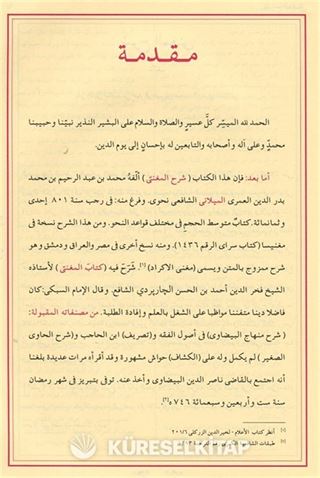 مقدمة
الحمد لله الميسِّر كلَّ عسيرٍ والصلاة والسلام على البشير النذير نبيّنا وحبيبنا
محمدٍ وعلى آله و أصحابه والتابعين له بإحسان إلى يوم الدين.
أما بعد: فإن هذا الكتاب ( شرح المغنى ) ألّفهُ محمد بن عبد الرحيم بن محمد
بدر الدين العمرى الميلانى الشافعي نحوى. وفرغ منه: في رجب سنة ٨٠١ إحدى
و ثمانمائة. كتابٌ متوسط الحجم في مختلف قواعد النحو. ومن هذا الشرح نسخة فى
مغنيسا (كتاب سراى الرقم ١٤٣٦). ومنه نسخ أخرى فى مصر والعراق و دمشق و هو
شرح ممزوج بالمتن ويسمى (مغنى الاكراد) [١]. شَرَح فيه (كتابَ المغنى) لأستاذه
الشيخ فخر الدين أحمد بن الحسن الچارپردي الشافع. و قال الإمام السبكى: كان
فاضلا دينا متفننا مواظبا على الشغل بالعلم و إفادة الطلبة. من مصنفاته المقبولة:
( شرح منهاج البيضاوى ) فى أصول الفقه و (تصريف) ابن الحاجب و (شرح الحاوى
الصغير ) لم يكمل وله على (الكشاف) حواش مشهورة و قد أقرأه مرات عديدة بلغنا
أنه اجتمع بالقاضى ناصر الدين البيضاوى و أخذ عنه. توفى بتبريز فى شهر رمضان
سنة ست و أربعين و سبعمائة ٧٤٦ ه[٢].
[١] أنظر كتاب الأعلام - لخير الدين الزركلي ٢٠١/٦
[٢] طبقات الشافعية الكبرى
KÜRESELKİTAP